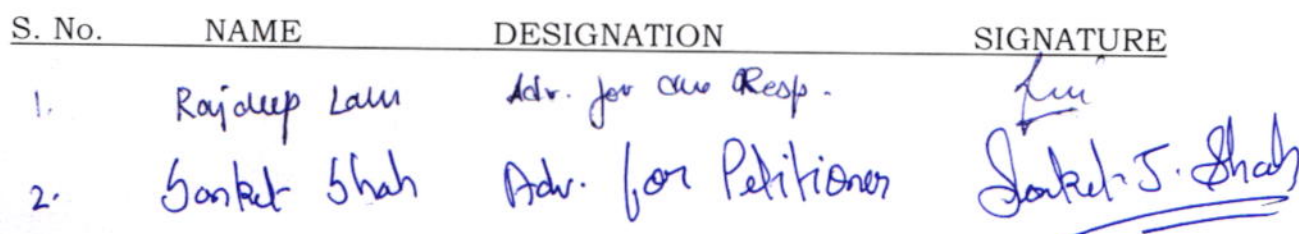 S. No. NAME DESIGNATION SIGNATURE
1. Rajdeep Adv. for the Resp.
2. Sanket Shah Adv. for Petitioner Sanket J. Shah